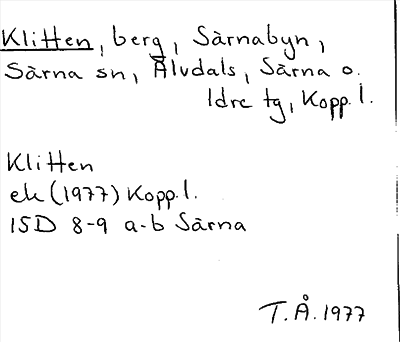 Klitten, berg, Särnabyn,
Särna sn, Älvdals, Särna o.
Idre tg, Kopp.l.
Klitten
ek (1977) Kopp.l.
15D 8-9 a-b Särna
T.Å. 1977